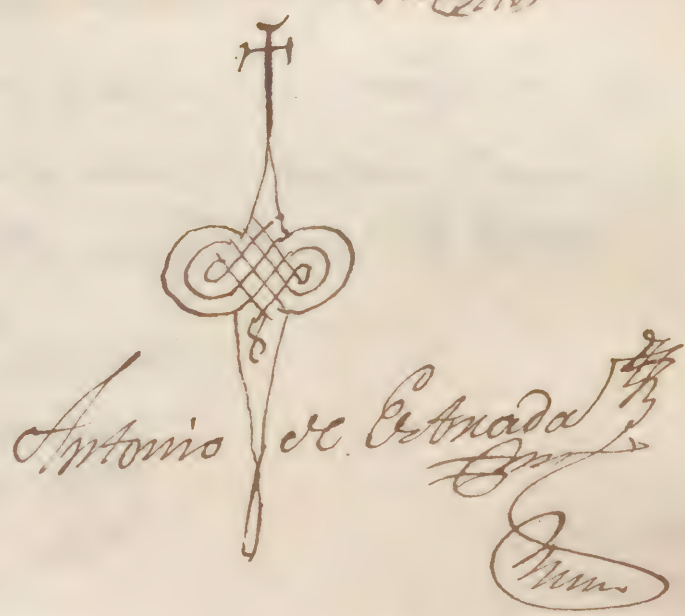 Antonio de Estrada